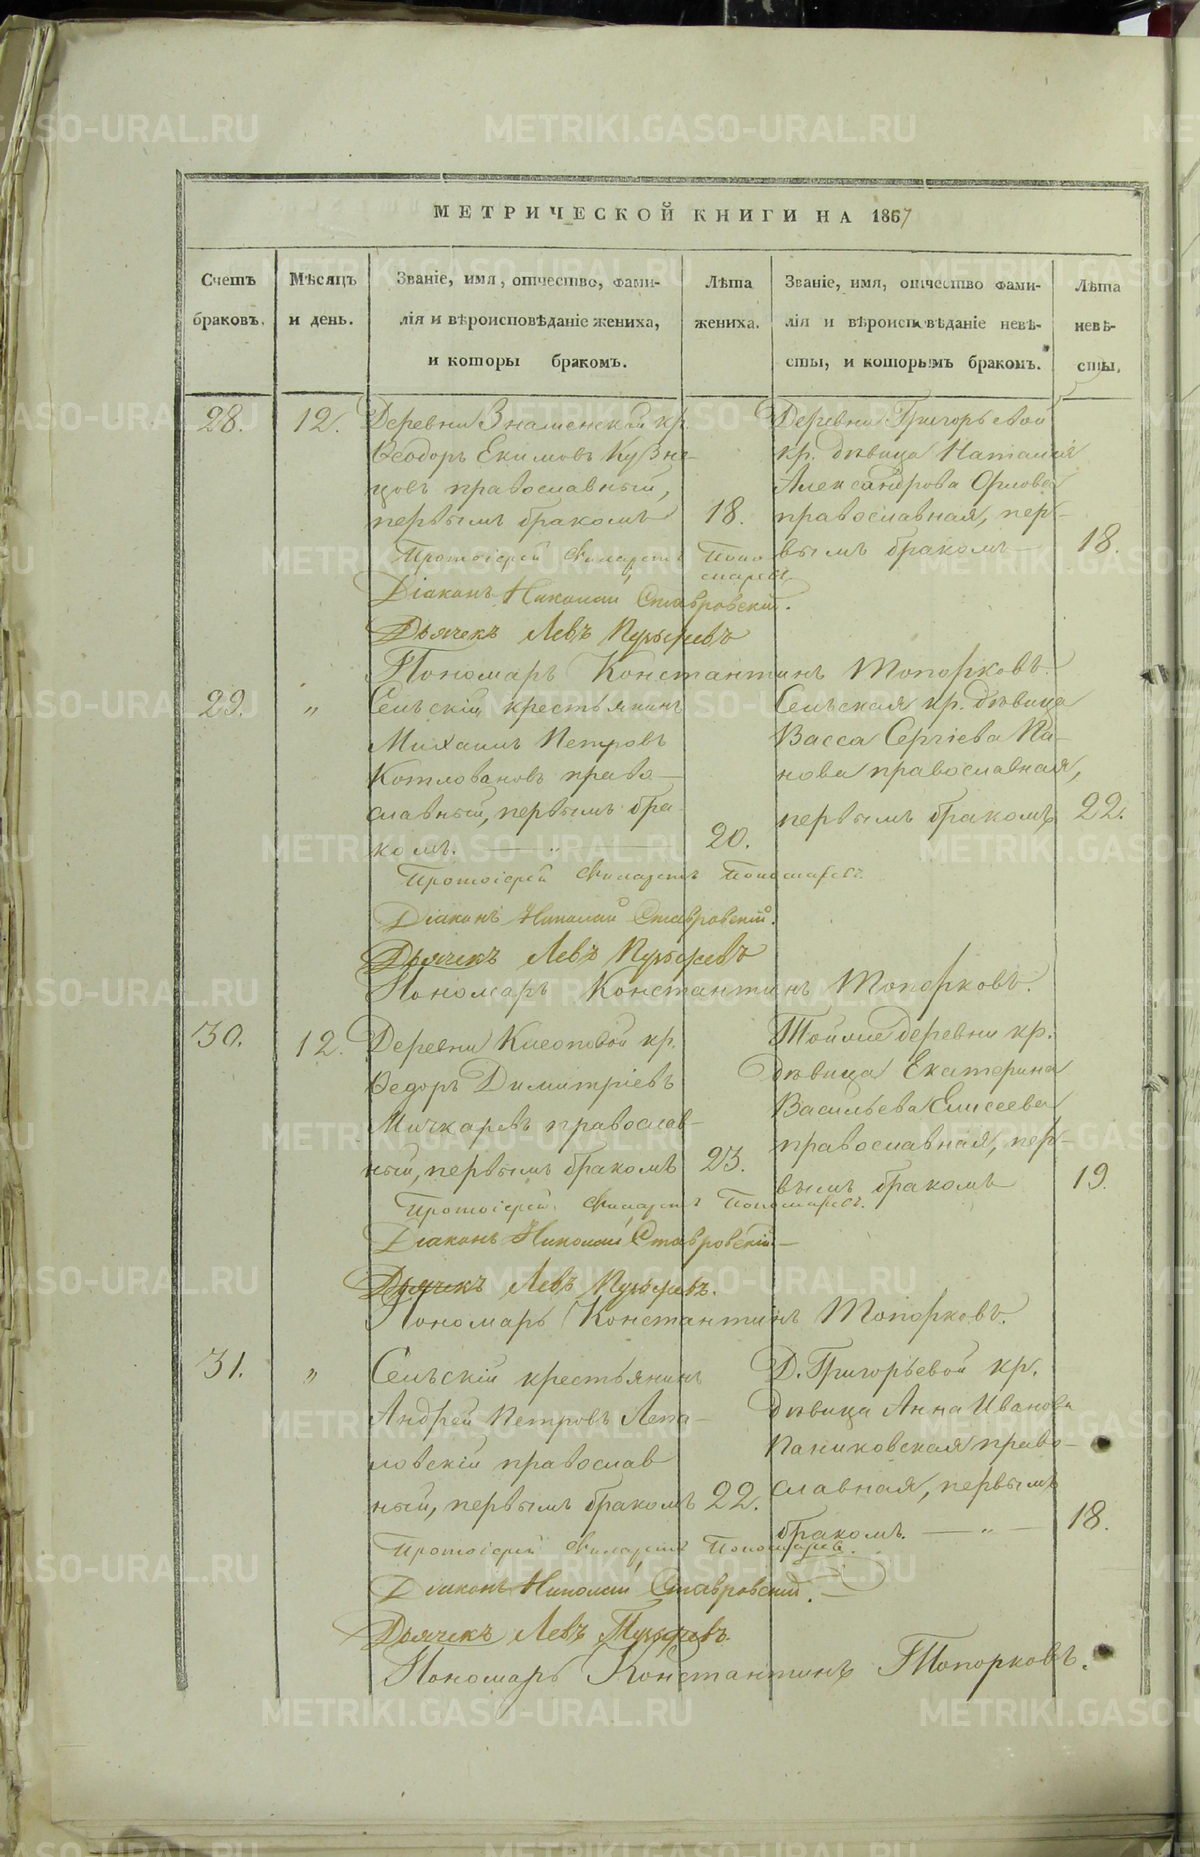 МЕТРИЧЕСКОЙ КНИГИ НА 1867
Счетъ
браковъ.
Мѣсяцъ
и день.
Званіе, имя, отчество, фами-
лія и вѣроисповѣданіе жениха,
и которы бракомъ.
Лѣта
жениха.
Званіе, имя, отчество фами-
лія и вѣроисповѣданіе невѣ-
сты, и которымъ бракомъ.
Лѣта
невѣ-
сты.
28.
12.
Деревни Знаменской кр.
Ѳеодоръ Екимовъ Кузне-
цовъ православный,
первымъ бракомъ
18.
Деревни Григорьевой
кр. дѣвица Наталія
Александрова Орлова
православная, пер-
вымъ бракомъ
18.
Протоіерей Пономаревъ
Діаконъ Николай Ставровскій.
Дьячекъ Левъ Пузыревъ
Пономарь Константинъ Топорковъ.
29.
"
Сельскій крестьянинъ
Михаилъ Петровъ
Котловановъ право-
славный, первымъ бра-
комъ. — " —
20.
Сельская кр. дѣвица
Васса Сергіева Па-
нова православная,
первымъ бракомъ
22.
Протоіерей Пономаревъ.
Діаконъ Николай Ставровскій.
Дьячекъ Левъ Пузыревъ
Пономарь Константинъ Топорковъ.
30.
12.
Деревни кр.
Ѳедоръ Димитріевъ
Мичкаревъ православ-
ный, первымъ бракомъ
23.
Тойже деревни кр.
дѣвица Екатерина
Васильева Елисеева
православная, пер-
вымъ бракомъ
19.
Протоіерей Пономаревъ.
Діаконъ Николай Ставровскій —
Дьячекъ Левъ Пузыревъ.
Пономарь Константинъ Топорковъ.
31.
"
Сельскій крестьянинъ
Андрей Петровъ Лепа-
ловскій православ
ный, первымъ бракомъ
22.
Д. Григорьевой кр.
дѣвица Анна Иванова
Паниковская право-
славная, первымъ
бракомъ. — " —
18.
Протоіерей Пономаревъ.
Діаконъ Николай Ставровскій. —
Дьячекъ Левъ Пузыревъ.
Пономарь Константинъ Топорковъ.
METRIKI.GASO-URAL.RU